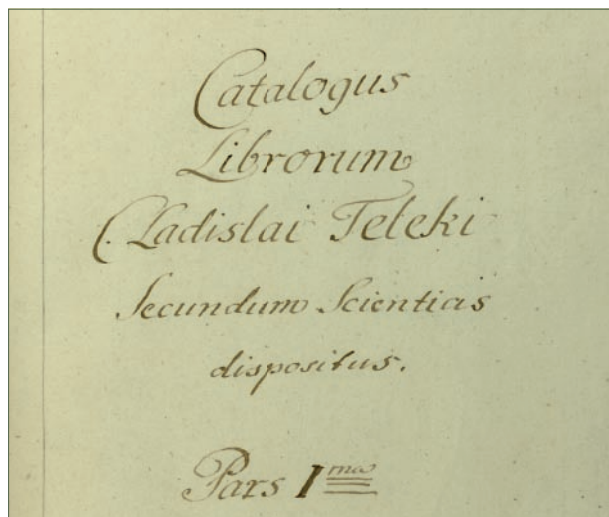 Catalogus
Librorum
C. Ladislai Teleki
Secundum Scientias
dispositus.
Pars I^ma